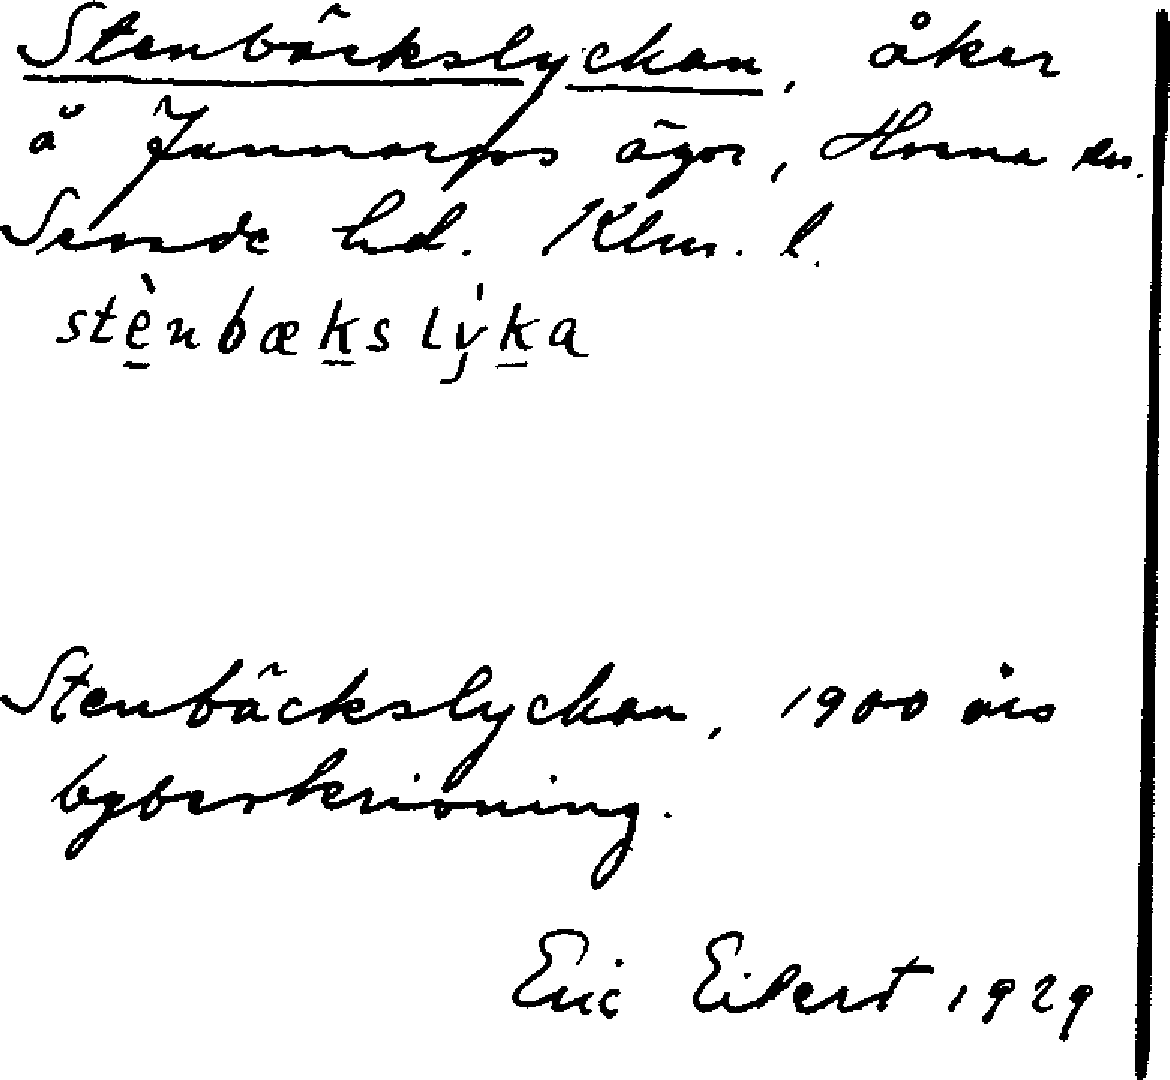 Stenbäckslyckan, åker
å Gunnarps ägor, Horna sn.
Sunde hd. Klm. l.
stènbækslýka
Stenbäckslyckan, 1900 års
bybeskrivning.
Eric Eilert 1929